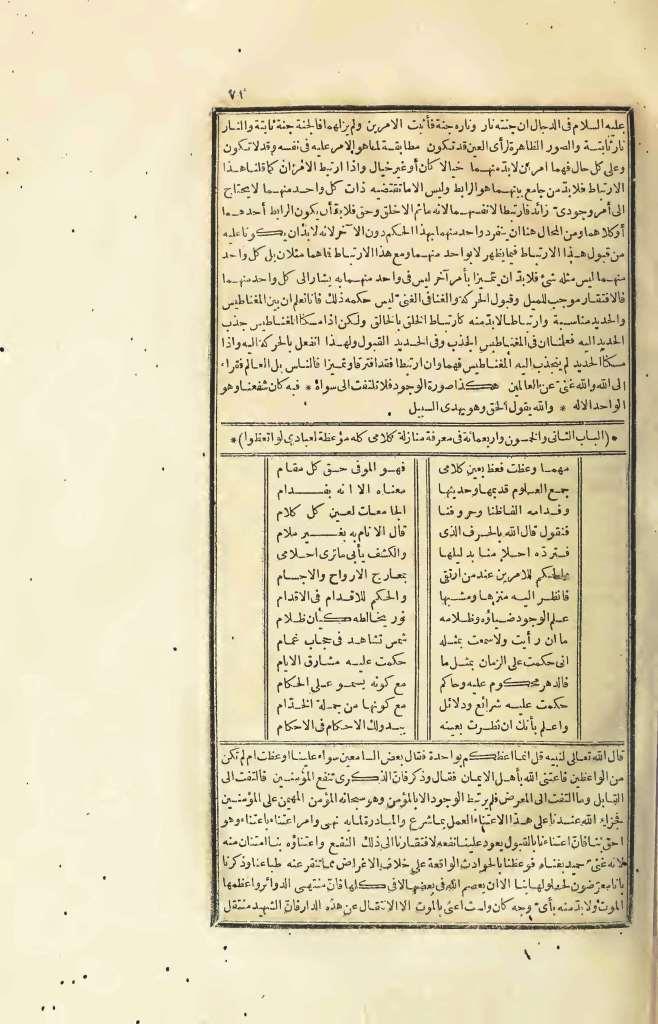 ٧١
عليه السلام فى الدجال ان جنته نار وناره جنة فأثبت الامرين ولم يزلهما فالجنة جنة ثابتة والنار
نار ثابتة والصور الظاهرة لرأى العين قد تكون مطابقة لما هو الامر عليه فى نفسه وقد لا تكون
وعلى كل حال فهما امرين لابد منهما خيالا كان أو غير خيال واذا ارتبط الامران كما قلنا هذا
الارتباط فلابد من جامع بينهما هو الرابط وليس الا ما تقتضيه ذات كل واحد منهما لا يحتاج
الى أمر وجودى زائد فارتبطا لانفسهما لانه ما ثم الا خلق وحق فلابد أن يكون الرابط أحدهما
أو كلاهما ومن المحال هنا ان ينفرد واحد منهما بهذا الحكم دون الآخر لانه لابد ان يكونا عليه
من قبول هذا الارتباط فيما يظهر لابواحد منهما ومع هذا الارتباط فاهما مثلان بل كل واحد
منهما ليس مثله شئ فلابد ان يتميزا بأمر آخر ليس فى واحد منهما به يشار الى كل واحد منهما
فالافتقار موجب للميل وقبول الحركة والغنا فى الغنى ليس حكمه ذلك فانا نعلم ان بين المغناطيس
والحديد مناسبة وارتباطا لابد منه كارتباط الخلق بالخالق ولكن اذا مسكنا المغناطيس جذب
الحديد اليه فعلمنا ان فى المغناطيس الجذب وفى الحديد القبول ولهذا انفعل بالحركة اليه واذا
مسكنا الحديد لم ينجذب اليه المغناطيس فهما وان ارتبطا فقد افترقا وتميزا فالناس بل العالم فقراء
الى الله والله غنى عن العالمين هكذا صورة الوجود فلا تلتفت الى سواه * فبه كان شفعنا وهو
الواحد الاله * والله يقول الحق وهو يهدى السبيل
* (الباب الثانى والخمسون واربعمائة فى معرفة منازلة كلامى كله موعظة لعبادى لو اتعظوا) *
مهما وعظت فعظ بعين كلامى فهو الموفى حق كل مقام
جمع العلوم قديمها وحديثها معناه الا انه بفدام
وفدامه الفاظنا وحروفنا الجامعات لعين كل كلام
فنقول قال الله بالحرف الذى قال الانام به بغير ملام
فترده احلامنا بدليلها والكشف يأبى ماترى احلامى
للامرين عند من ارتقى بمعارج الارواح والاجسام
فانظر اليه منزها ومشبها والحكم للاقدام فى الاقدام
علم الوجود ضياؤه وظلامه نور يخالطه كيان ظلام
ما ان رأيت ولا سمعت بمثله شمس تشاهد فى حجاب غمام
انى حكمت على الزمان بمثل ما حكمت عليه مشارق الايام
فالدهر محكوم عليه وحاكم مع كونه يسمو على الحكام
حكمت عليه شرائع ودلائل مع كونها من جملة الخدام
واعلم بأنك ان نظرت بعينه يبدو لك الاحكام فى الاحكام
قال الله تعالى لنبيه قل انما اعظكم بواحدة فقال بعض السامعين سواء علينا اوعظت ام لم تكن
من الواعظين فاعتنى الله بأهل الايمان فقال وذكر فان الذكرى تنفع المؤمنين فالتفت الى
القابل وما التفت الى المعرض فلم يرتبط الوجود الا بالمؤمن وهو سبحانه المؤمن المهيمن على المؤمنين
فجزاء الله عندنا على هذا الاعتناء العمل بما شرع والمبادرة لما به نهى وامر اعتناء باعتناء وهو
احق بنا فان اعتناءنا بالقبول يعود علينا نفعه لافتقارنا الى ذلك النفع واعتناؤه بنا امتنان منه
لانه غنى حميد بغناه فوعظنا بالحوادث الواقعة على خلاف الاغراض مما تنفر عنه طباعنا وذكرنا
بانا معرضون لحلولها بنا الا ان يعصم الله فى بعضها لا فى كلها فان منتهى الدوائر واعظمها
الموت ولابد منه بأى وجه كان ولست اعنى بالموت الا الانتقال عن هذه الدار فان الشهيد منتقل